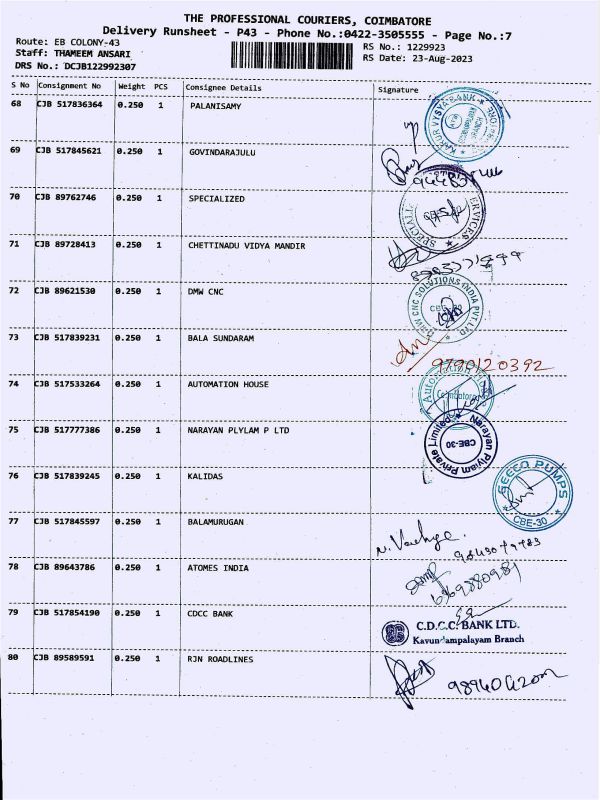 THE PROFESSIONAL COURIERS, COIMBATORE
Delivery Runsheet - P43 - Phone No.:0422-3505555 - Page No.:7
Route: EB COLONY-43 RS No.: 1229923
Staff: THAMEEM ANSARI RS Date: 23-Aug-2023
DRS No.: DCJB122992307
S No Consignment No Weight PCS Consignee Details Signature
68 CJB 517836364 0.250 1 PALANISAMY
69 CJB 517845621 0.250 1 GOVINDARAJULU
70 CJB 89762746 0.250 1 SPECIALIZED
71 CJB 89728413 0.250 1 CHETTINADU VIDYA MANDIR
72 CJB 89621530 0.250 1 DMW CNC
DMW CNC SOLUTIONS INDIA PVT LTD
73 CJB 517839231 0.250 1 BALA SUNDARAM
9790120392
74 CJB 517533264 0.250 1 AUTOMATION HOUSE
Automation
Coimbatore
75 CJB 517777386 0.250 1 NARAYAN PLYLAM P LTD
Narayan Plylam Private Limited
CBE-30
76 CJB 517839245 0.250 1 KALIDAS
GEECO PUMPS
CBE-30
77 CJB 517845597 0.250 1 BALAMURUGAN
78 CJB 89643786 0.250 1 ATOMES INDIA
79 CJB 517854190 0.250 1 CDCC BANK
C.D.C.C. BANK LTD.
Kavundampalayam Branch
80 CJB 89589591 0.250 1 RJN ROADLINES